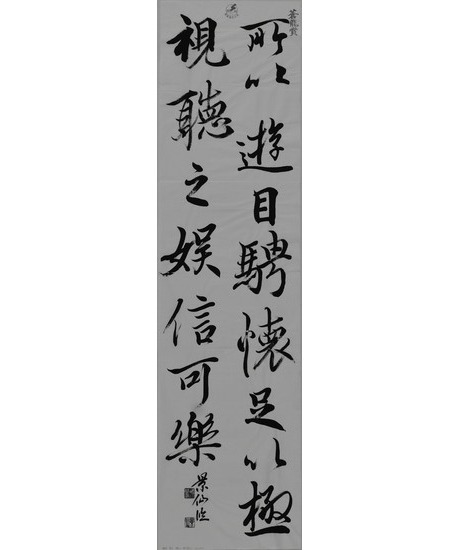 蒼龍賞
所以遊目騁懷足以極
視聽之娯信可樂
景仙臨